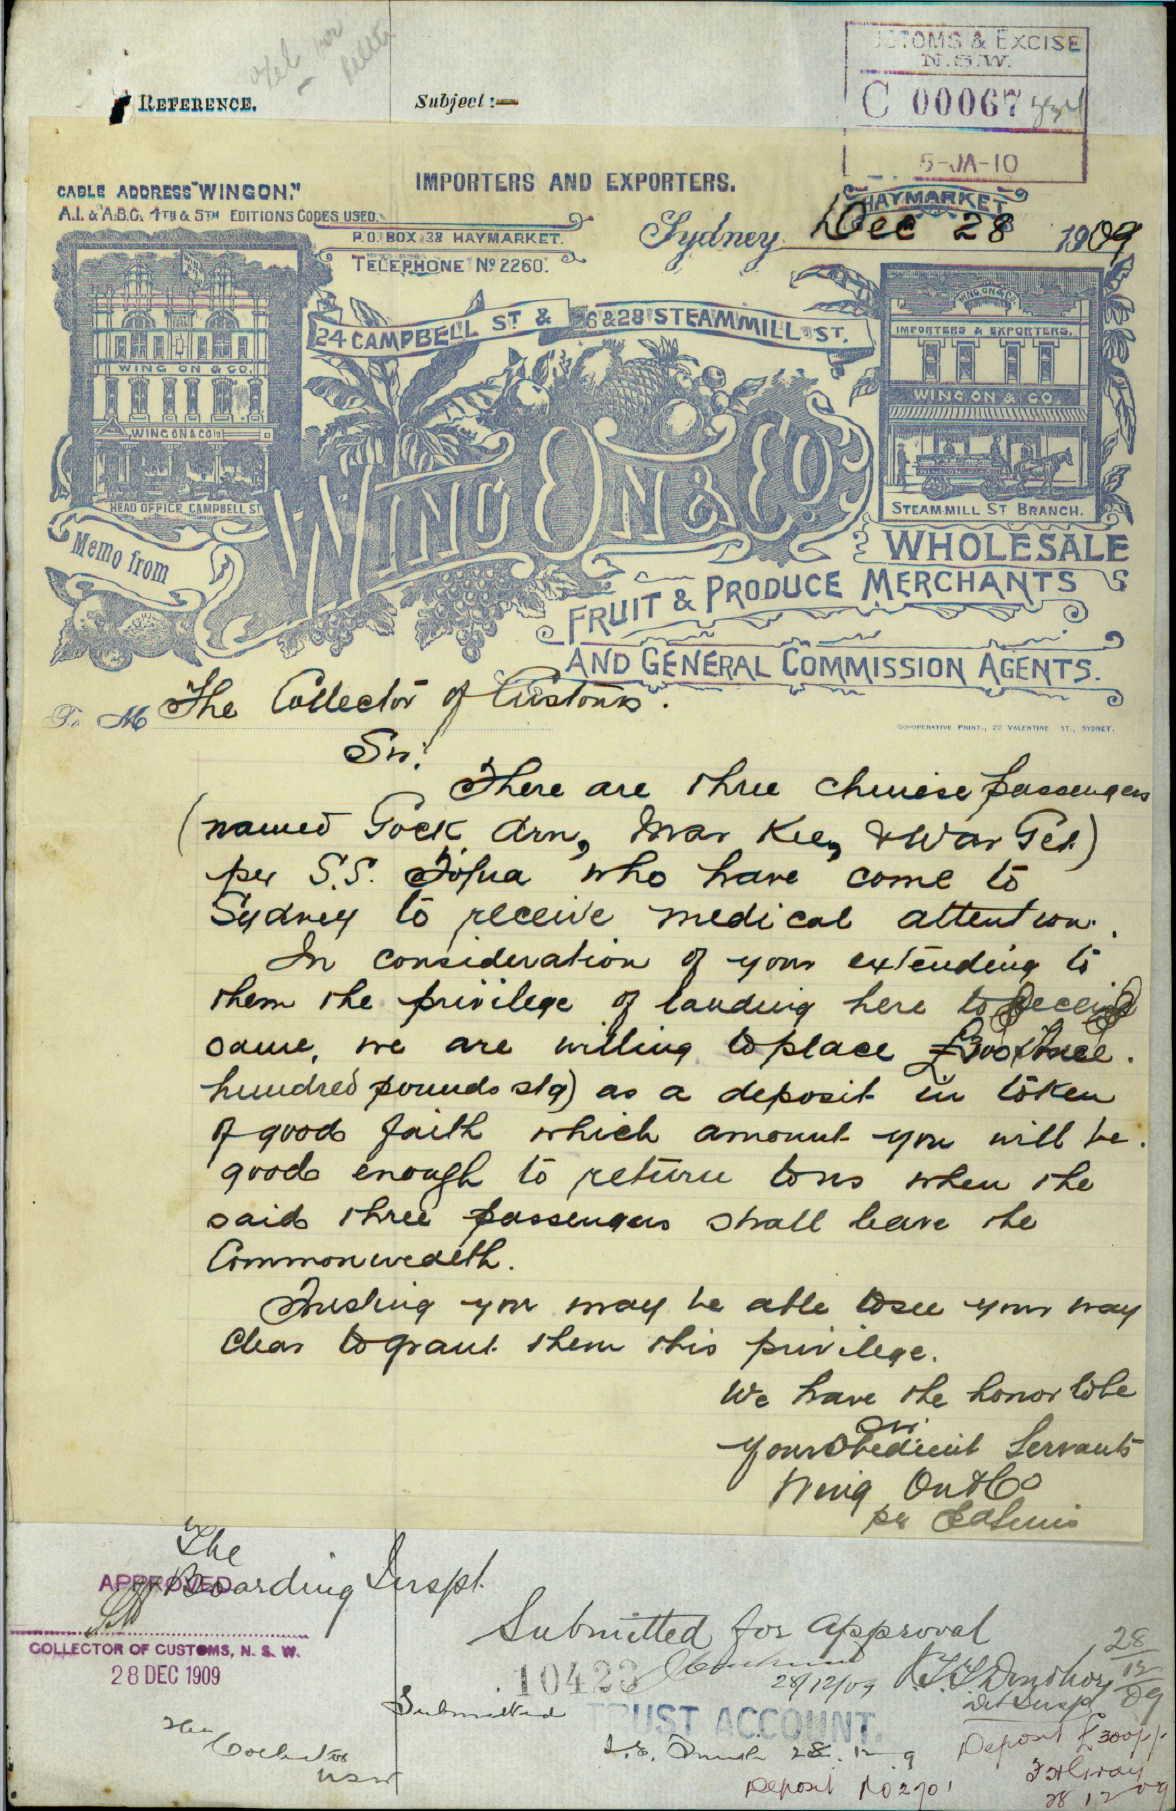 REFERENCE.
Subject:—
CUSTOMS & EXCISE
N.S.W.
C 00067
5-JA-10
CABLE ADDRESS "WINGON."
A.I. & A.B.C. 4TH & 5TH EDITIONS CODES USED.
IMPORTERS AND EXPORTERS.
P.O. BOX 38 HAYMARKET.
TELEPHONE No 2260.
HAYMARKET
Sydney Dec 28 1909
24 CAMPBELL ST & 26 & 28 STEAM MILL ST.
WING ON & CO.
WING ON & CO
HEAD OFFICE CAMPBELL ST
WING ON & CO.
IMPORTERS & EXPORTERS.
WING ON & CO.
STEAM MILL ST BRANCH.
Memo from
WING ON & CO.
WHOLESALE
FRUIT & PRODUCE MERCHANTS
AND GENERAL COMMISSION AGENTS.
CO-OPERATIVE PRINT., 22 VALENTINE ST., SYDNEY.
To M The Collector of Customs.
Sir:
There are three chinese passengers
(named Gock Arn, Mar Kee, & War Get)
per S.S. Tofua who have come to
Sydney to receive medical attention.
In consideration of your extending to
them the privilege of landing here to receive
same, we are willing to place £300 (three
hundred pounds stg) as a deposit in token
of good faith which amount you will be
good enough to return to us when the
said three passengers shall leave the
Commonwealth.
Trusting you may be able to see your way
clear to grant them this privilege.
We have the honor to be
Sir
your obedient Servants
Wing On & Co
per
The
Boarding Inspt.
APPROVED
COLLECTOR OF CUSTOMS, N. S. W.
28 DEC 1909
Submitted for approval
28/12/09
Det Inspr
28/12/09
10423
Submitted
TRUST ACCOUNT.
28.12.9
The Collector
NSW
Deposit £300/-/-
Deposit No 2701
28 12 09